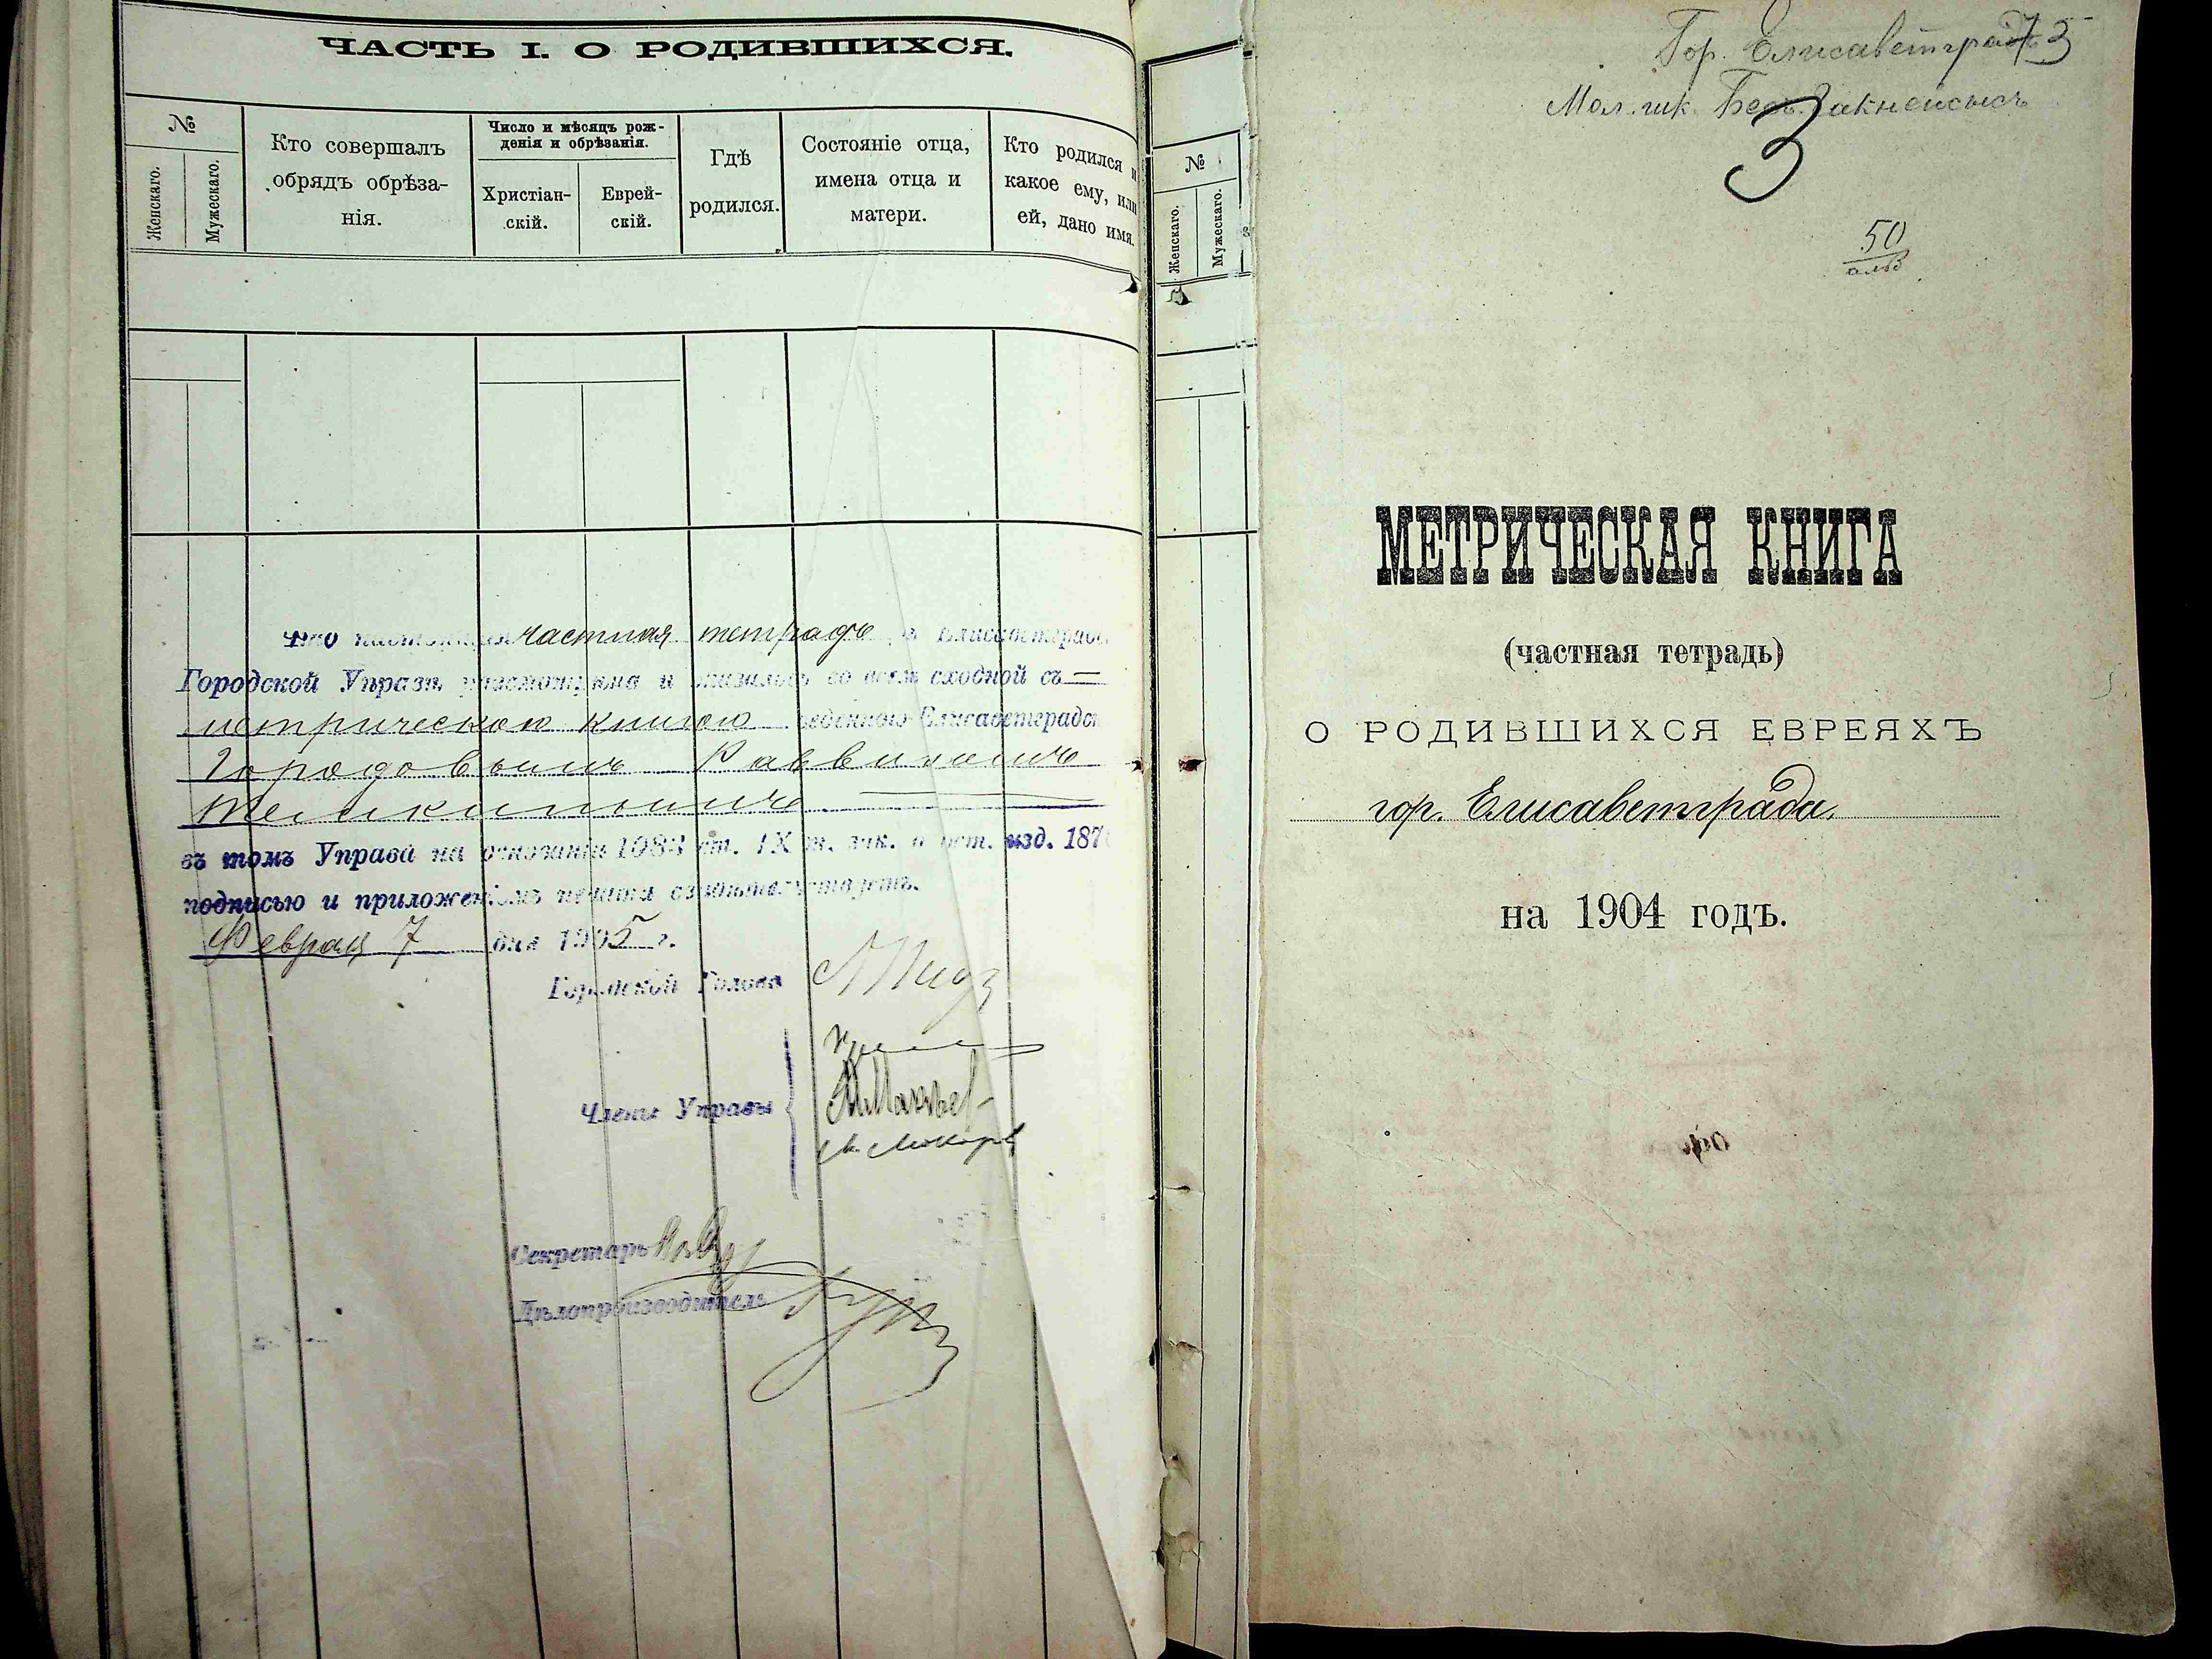 ЧАСТЬ I. О РОДИВШИХСЯ.
№
Женскаго.
Мужескаго.
Кто совершалъ
обрядъ обрѣза-
нія.
Число и мѣсяцъ рож-
денія и обрѣзанія.
Христіан-
скій.
Еврей-
скій.
Гдѣ
родился.
Состояніе отца,
имена отца и
матери.
Кто родился и
какое ему, или
ей, дано имя.
Что настоящая частная тетрадь в Елисаветградс
Городской Управѣ и оказалось во всемъ сходной съ —
метрическою книгою веденною Елисаветградс
Городовымъ Раввиномъ
Темкинымъ
въ томъ Управа на основаніи 1083 ст. IX т. зак. о сост. изд. 187
подписью и приложеніемъ печати свидѣтельствуетъ.
Февраля 7 дня 1905 г.
Городской Голова
Члены Управы
Секретарь
Дѣлопроизводитель
№
Женскаго.
Мужескаго.
Гор. Елисаветградъ 73
Мол. шк. Бес.
3
50
МЕТРИЧЕСКАЯ КНИГА
(частная тетрадь)
О РОДИВШИХСЯ ЕВРЕЯХЪ
гор. Елисаветграда.
на 1904 годъ.